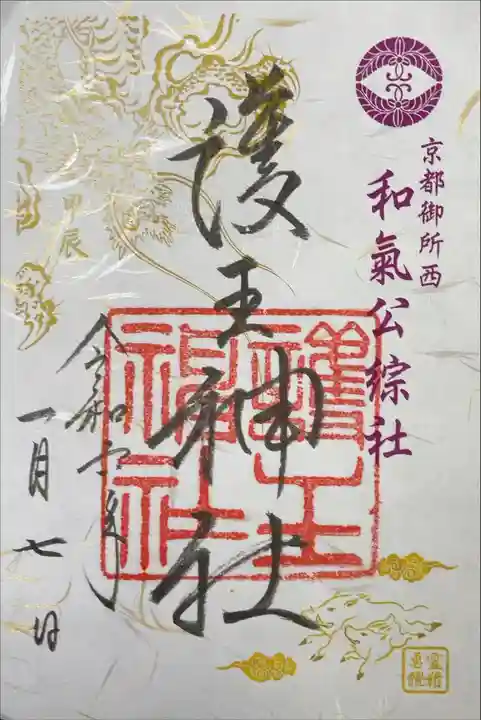 京都御所西
和氣公綜社
護王神社
護王神社
甲辰
令和六年
一月七日